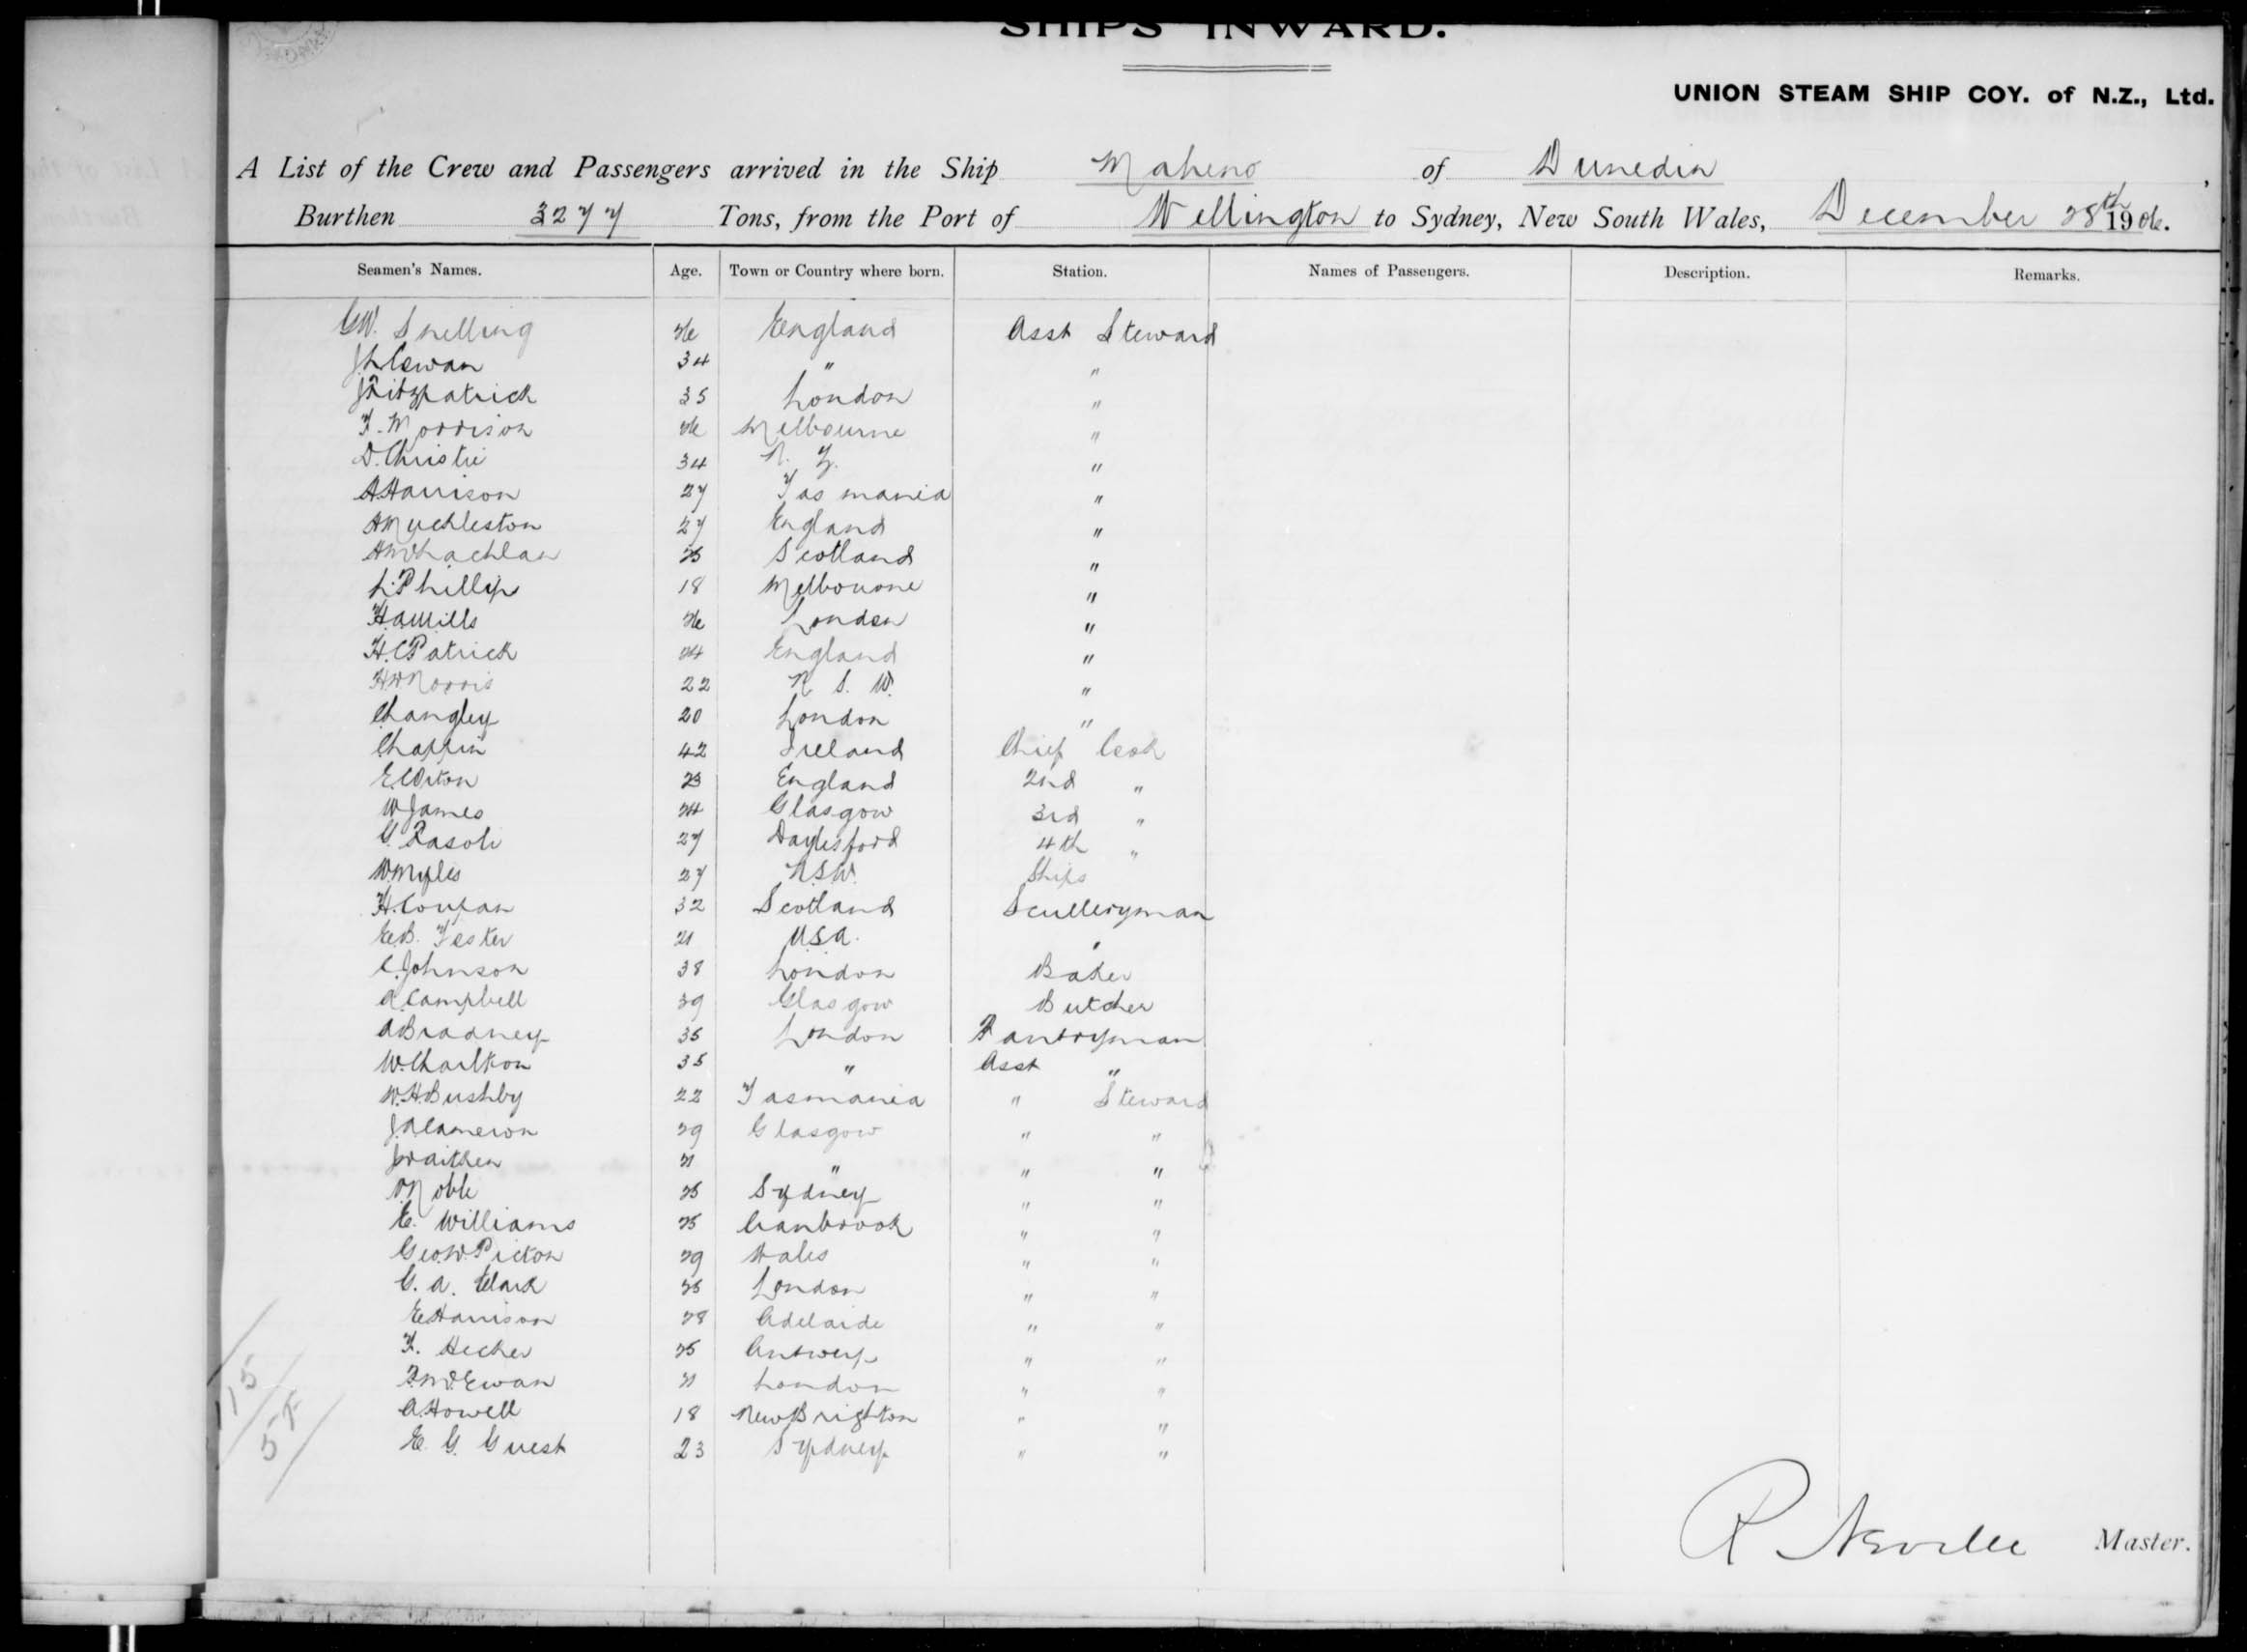 SHIPS INWARD.
UNION STEAM SHIP COY. of N.Z., Ltd.
A List of the Crew and Passengers arrived in the Ship Maheno of Dunedin
Burthen 3277 Tons, from the Port of Wellington to Sydney, New South Wales, December 28th 1906.
Seamen's Names. Age. Town or Country where born. Station. Names of Passengers. Description. Remarks.
G.W. Snelling 26 England Asst Steward
34 " "
J Fitzpatrick 35 London "
F. Morrison 26 Melbourne "
D. Christie 34 N. Z. "
A. Harrison 27 Tasmania "
A Muckleston 27 England "
A McLachlan 25 Scotland "
L. Phillips 18 Melbourne "
H.A. Mills 26 London "
H. C Patrick 24 England "
H W Norris 22 N. S. W. "
C Langley 20 London "
C Laffin 42 Ireland Chief Cook
E. C Orton 23 England 2nd "
W James 24 Glasgow 3rd "
G. Rasoli 27 Daylesford 4th "
W. Myles 27 N.S.W. Ships
H. Coupar 32 Scotland Sculleryman
E.B. Fester 21 U.S.A. "
C. Johnson 38 London Baker
A Campbell 39 Glasgow Butcher
A Bradney 35 London Pantryman
W. Charlton 35 " Asst "
W. H. Bushby 22 Tasmania " Steward
J. A Cameron 29 Glasgow " "
J Waithen 21 " " "
Noble 25 Sydney " "
E. Williams 25 Cranbrook " "
Geo. W. Picton 29 Wales " "
G. A. Clark 25 London " "
E Harrison 28 Adelaide " "
F. Hecher 25 Antwerp " "
P. McEwan 21 London " "
A. Howell 18 New Brighton " "
E. G. Guest 23 Sydney " "
115
5 F
R Neville Master.